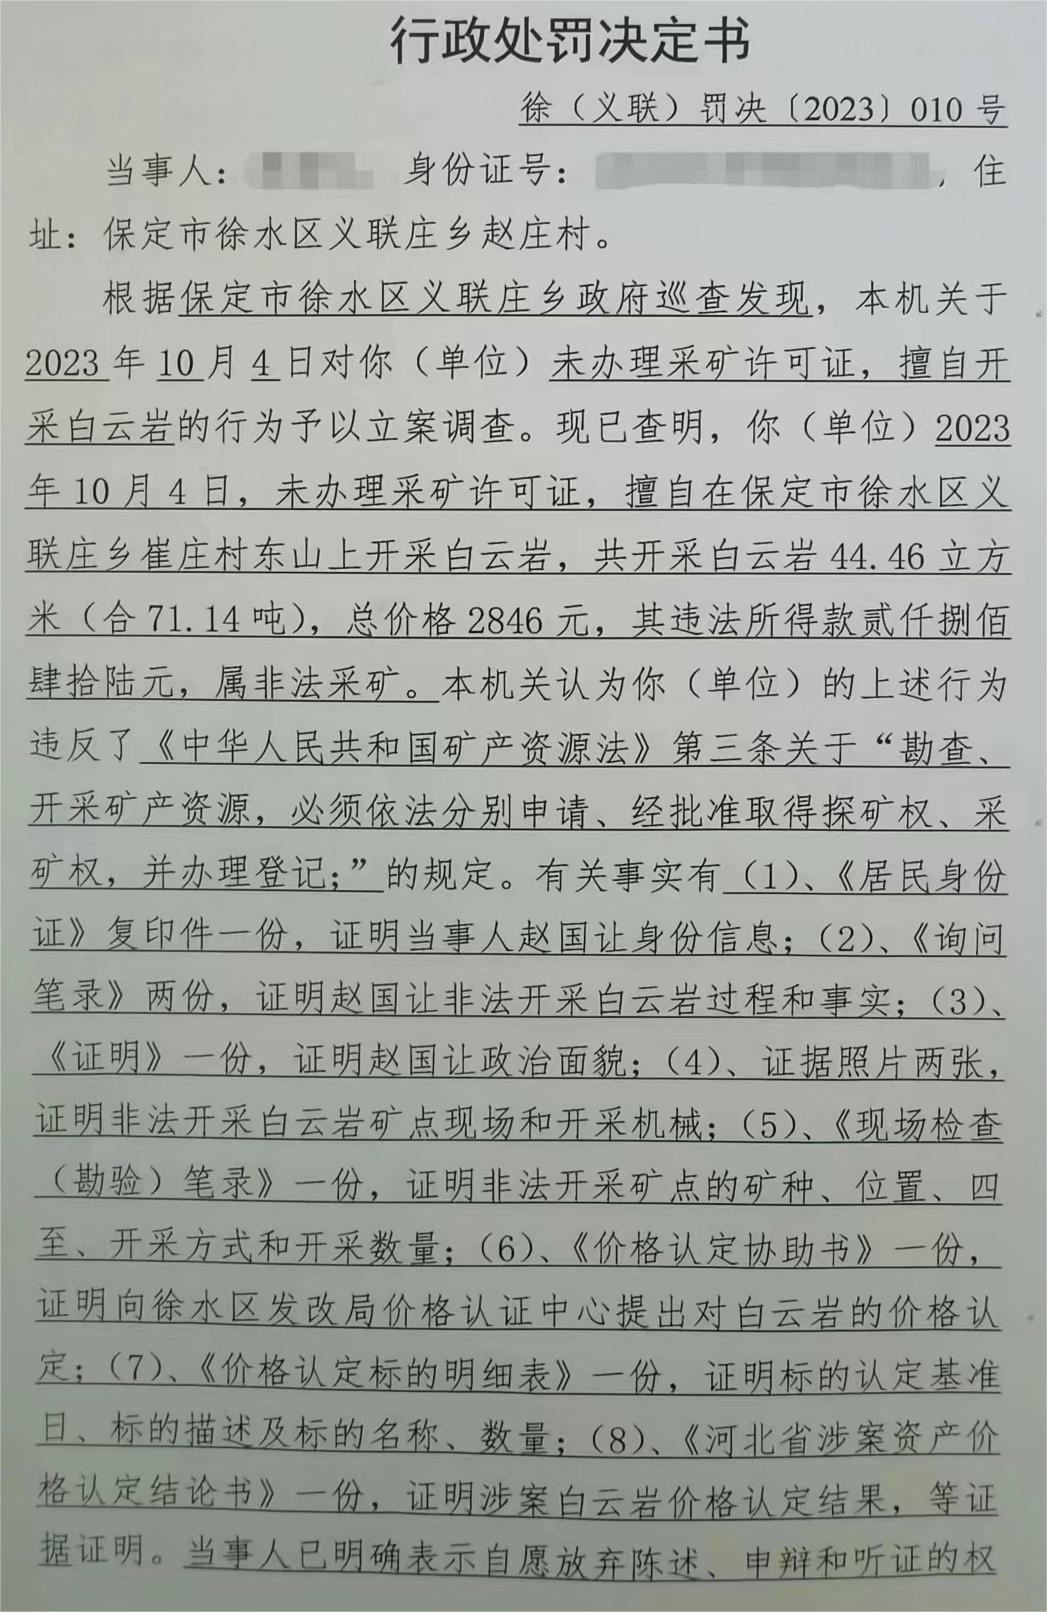 行政处罚决定书
徐（义联）罚决〔2023〕010号
当事人： 身份证号： ，住
址：保定市徐水区义联庄乡赵庄村。
根据保定市徐水区义联庄乡政府巡查发现，本机关于
2023年10月4日对你（单位）未办理采矿许可证，擅自开
采白云岩的行为予以立案调查。现已查明，你（单位）2023
年10月4日，未办理采矿许可证，擅自在保定市徐水区义
联庄乡崔庄村东山上开采白云岩，共开采白云岩44.46立方
米（合71.14吨），总价格2846元，其违法所得款贰仟捌佰
肆拾陆元，属非法采矿。本机关认为你（单位）的上述行为
违反了《中华人民共和国矿产资源法》第三条关于“勘查、
开采矿产资源，必须依法分别申请、经批准取得探矿权、采
矿权，并办理登记；”的规定。有关事实有（1）、《居民身份
证》复印件一份，证明当事人赵国让身份信息；（2）、《询问
笔录》两份，证明赵国让非法开采白云岩过程和事实；（3）、
《证明》一份，证明赵国让政治面貌；（4）、证据照片两张，
证明非法开采白云岩矿点现场和开采机械；（5）、《现场检查
（勘验）笔录》一份，证明非法开采矿点的矿种、位置、四
至、开采方式和开采数量；（6）、《价格认定协助书》一份，
证明向徐水区发改局价格认证中心提出对白云岩的价格认
定；（7）、《价格认定标的明细表》一份，证明标的认定基准
日、标的描述及标的名称、数量；（8）、《河北省涉案资产价
格认定结论书》一份，证明涉案白云岩价格认定结果，等证
据证明。当事人已明确表示自愿放弃陈述、申辩和听证的权